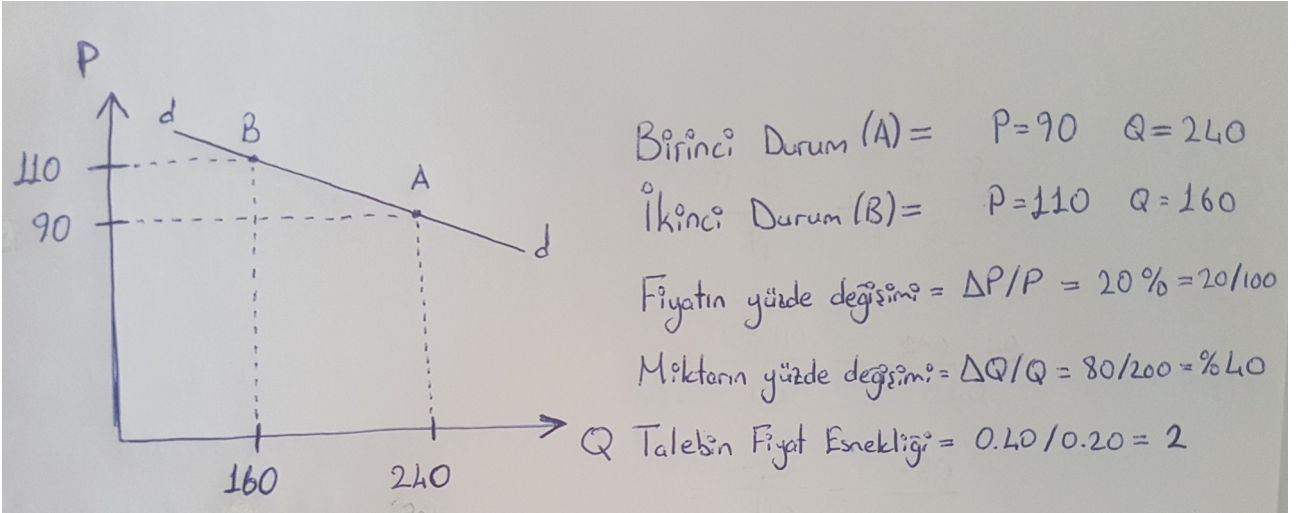 P
d
B
110
A
90
d
160
240
Q
Birinci Durum (A) = P=90 Q=240
İkinci Durum (B) = P=110 Q=160
Fiyatın yüzde değişimi = ΔP/P = 20% = 20/100
Miktarın yüzde değişimi = ΔQ/Q = 80/200 = %40
Talebin Fiyat Esnekliği = 0.40/0.20 = 2